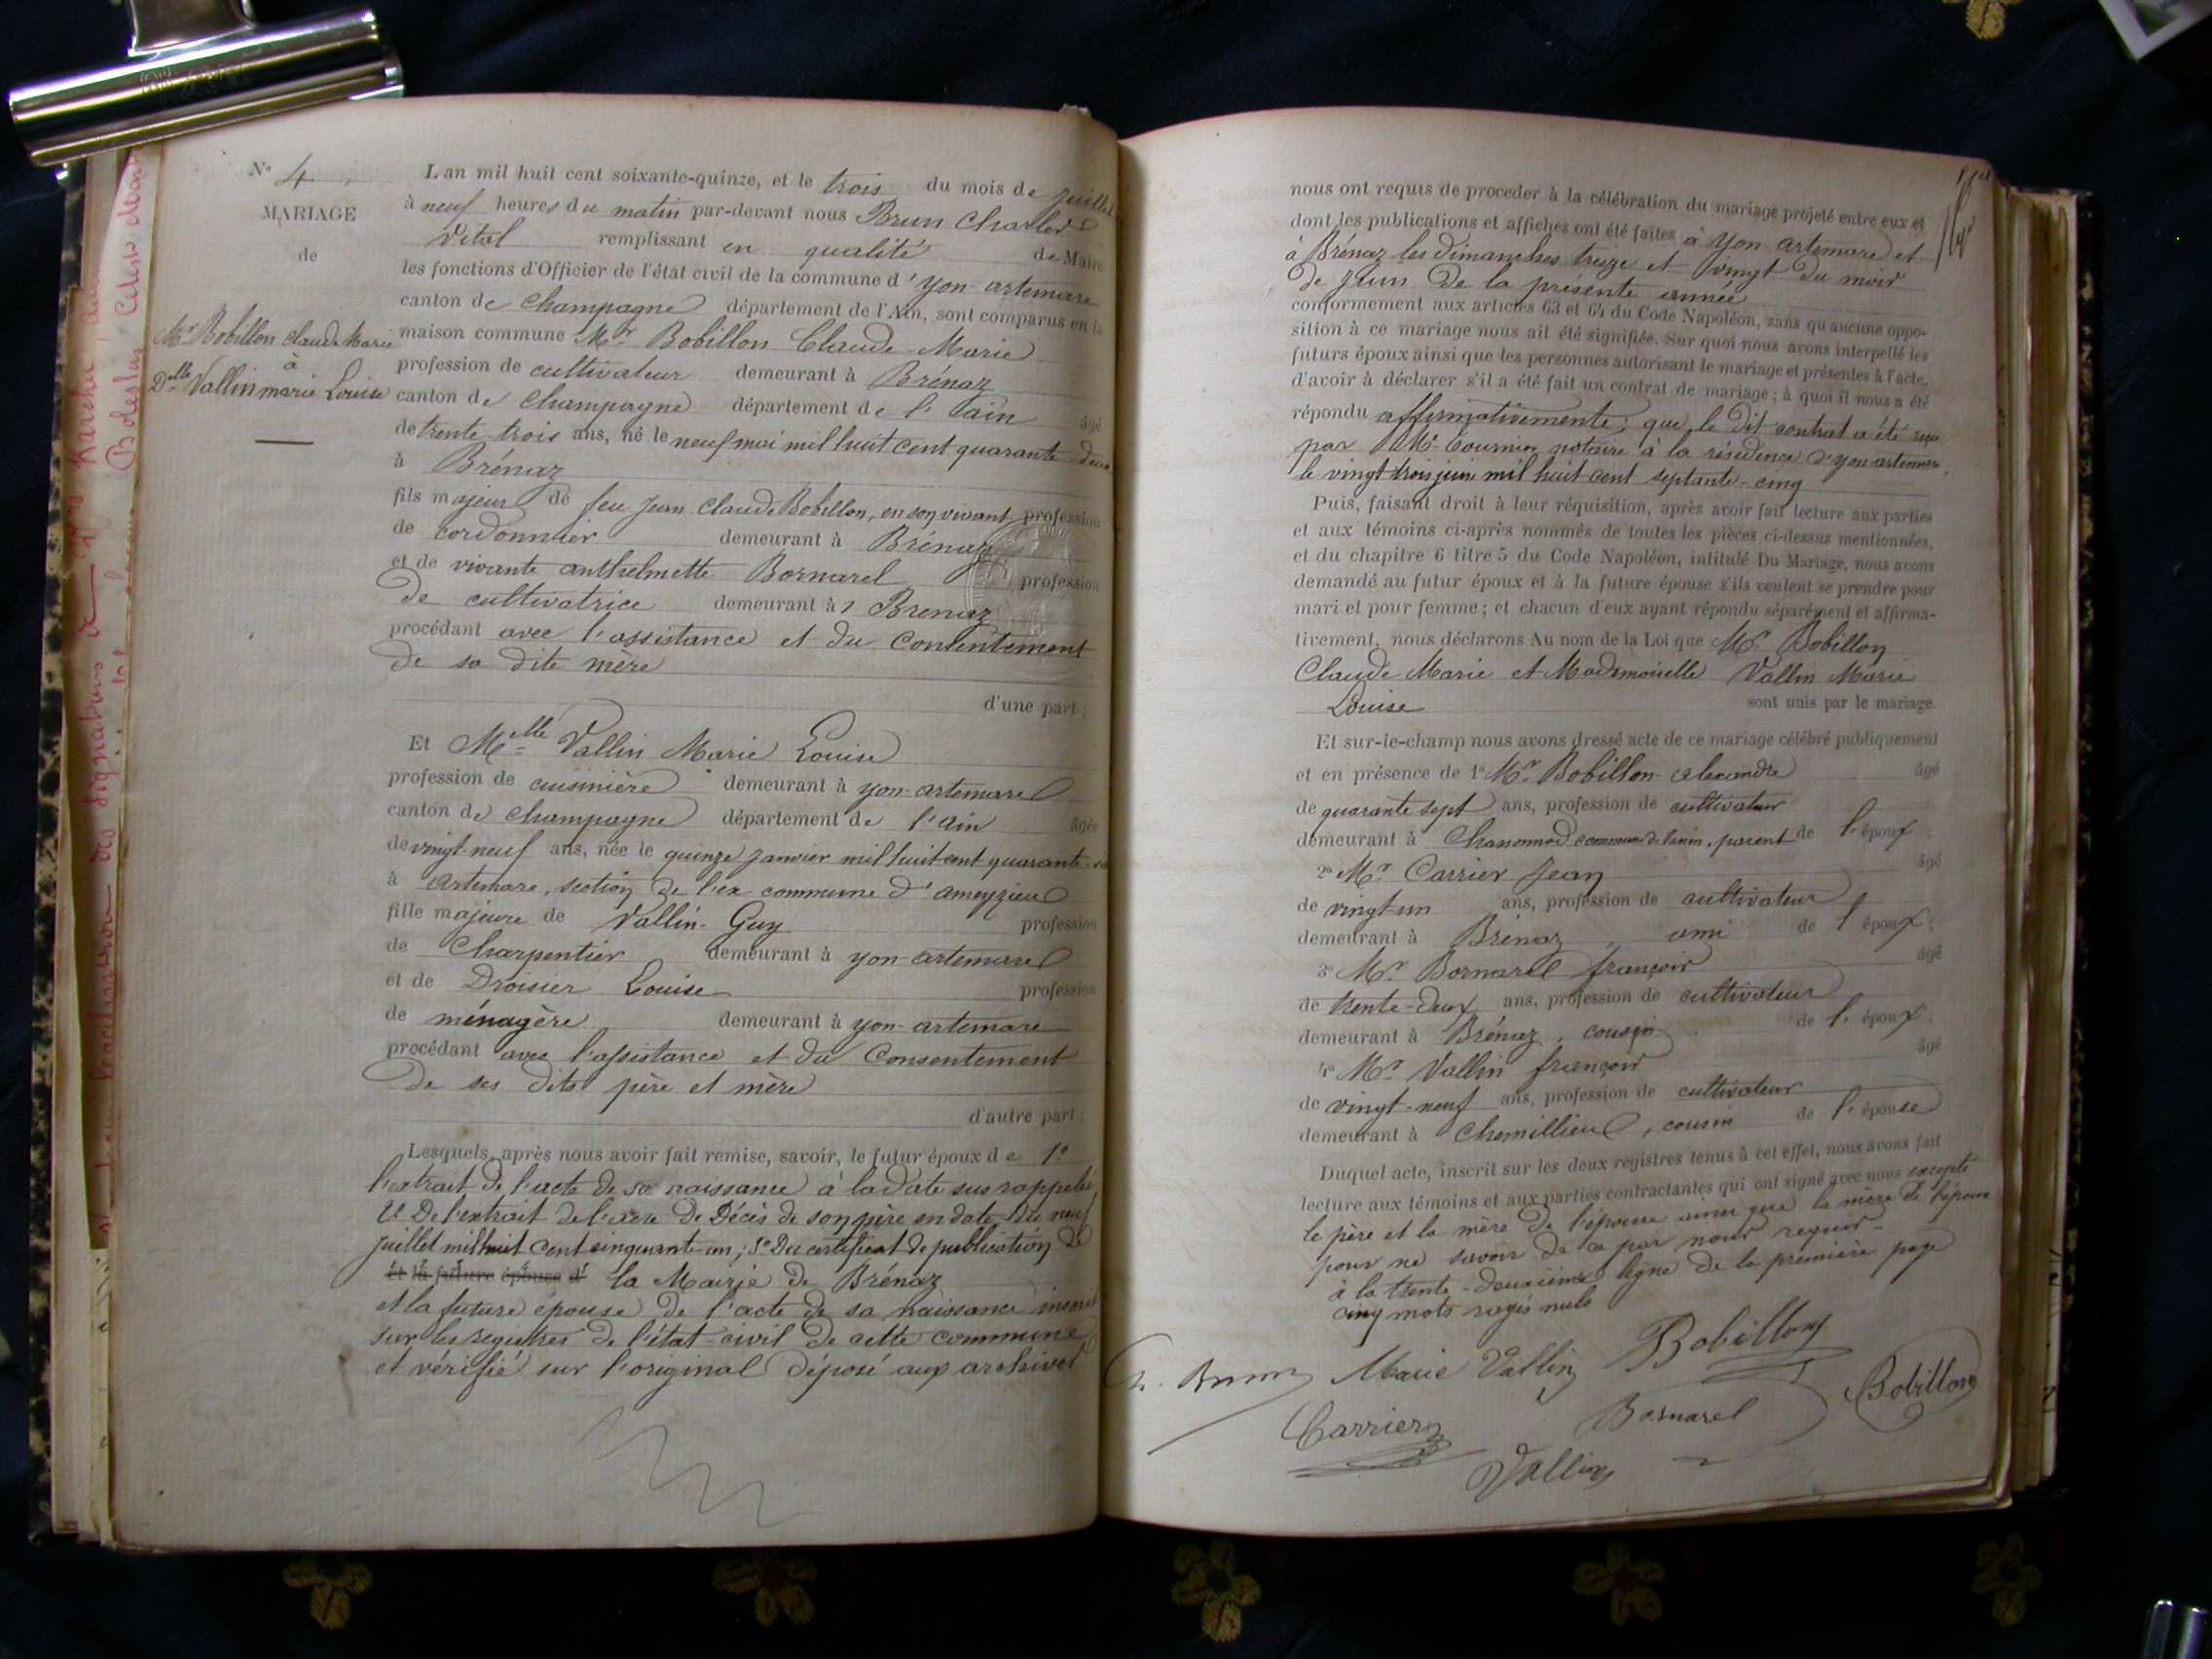 N° 4
MARIAGE
de
Mr Bobillon Claude Marie
à
Dlle Vallin marie Louise
L'an mil huit cent soixante-quinze, et le trois du mois de juillet
à neuf heures du matin par-devant nous Brun Charles
Vital remplissant en qualité de Maire
les fonctions d'Officier de l'état civil de la commune d'yon-artemare
canton de Champagne département de l'Ain, sont comparus en la
maison commune Mr Bobillon Claude-Marie
profession de cultivateur demeurant à Brénaz
canton de Champagne département de l'ain âgé
de trente-trois ans, né le neuf mai mil huit cent quarante-deux
à Brénaz
fils majeur de feu Jean Claude Bobillon, en son vivant profession
de cordonnier demeurant à Brénaz
et de vivante anthelmette Bornarel profession
de cultivatrice demeurant à Brenaz
procédant avec l'assistance et du Consentement
de sa dite mère
d'une part;
Et Melle Vallin Marie Louise
profession de cuisinière demeurant à yon-artemare
canton de Champagne département de l'ain âgée
de vingt-neuf ans, née le quinze janvier mil huit cent quarante-
à Artemare, section de l'ex commune d'ameyzieu
fille majeure de Vallin-Guy profession
de Charpentier demeurant à yon-artemare
et de Droisier Louise profession
de ménagère demeurant à yon-artemare
procédant avec l'assistance et du Consentement
de ses dits père et mère
d'autre part;
Lesquels, après nous avoir fait remise, savoir, le futur époux de 1°
l'extrait de l'acte de sa naissance à la date sus rappelée
2° De l'extrait de l'acte de Décès de son père en date du neuf
juillet mil huit cent cinquante un; 3° Du certificat de publication de
et la future épouse d' la Mairie de Brénaz
et la future épouse de l'acte de sa naissance inscrit
sur les registres de l'état-civil de cette commune
et vérifié sur l'original déposé aux archives
nous ont requis de proceder à la célébration du mariage projeté entre eux et
dont les publications et affiches ont été faites à yon-artemare et
à Brénaz les dimanches treize et vingt du mois
de Juin de la présente année
conformement aux articles 63 et 64 du Code Napoléon, sans qu'aucune oppo-
sition à ce mariage nous ait été signifiée. Sur quoi nous avons interpellé les
futurs époux ainsi que les personnes autorisant le mariage et présentes à l'acte,
d'avoir à déclarer s'il a été fait un contrat de mariage; à quoi il nous a été
répondu affirmativement; que le dit contrat a été reçu
par Me notaire à la résidence d'yon artemare
le vingt trois juin mil huit cent septante-cinq
Puis, faisant droit à leur réquisition, après avoir fait lecture aux parties
et aux témoins ci-après nommés de toutes les pièces ci-dessus mentionnées,
et du chapitre 6 titre 5 du Code Napoléon, intitulé Du Mariage, nous avons
demandé au futur époux et à la future épouse s'ils veulent se prendre pour
mari et pour femme; et chacun d'eux ayant répondu séparément et affirma-
tivement, nous déclarons Au nom de la Loi que Mr Bobillon
Claude Marie et Mademoiselle Vallin Marie
Louise sont unis par le mariage.
Et sur-le-champ nous avons dressé acte de ce mariage célébré publiquement
et en présence de 1° Mr Bobillon-alexandre âgé
de quarante sept ans, profession de cultivateur
demeurant à commune de, parent de l'époux;
2° Mr Carrier Jean âgé
de vingt-un ans, profession de cultivateur
demeurant à Brénaz, ami de l'époux;
3° Mr Bornarel françois âgé
de trente-deux ans, profession de cultivateur
demeurant à Brénaz, cousin de l'époux;
4° Mr Vallin françois âgé
de vingt-neuf ans, profession de cultivateur
demeurant à Chemillieu, cousin de l'épouse
Duquel acte, inscrit sur les deux registres tenus à cet effet, nous avons fait
lecture aux témoins et aux parties contractantes qui ont signé avec nous excepté
le père et la mère de l'épouse ainsi que la mère de l'époux
pour ne savoir de ce par nous requis-
à la trente-deuxième ligne de la première page
cinq mots rayés nuls
Brun Marie Vallin Bobillon
Bobillon
Carrier Bornarel
Vallin